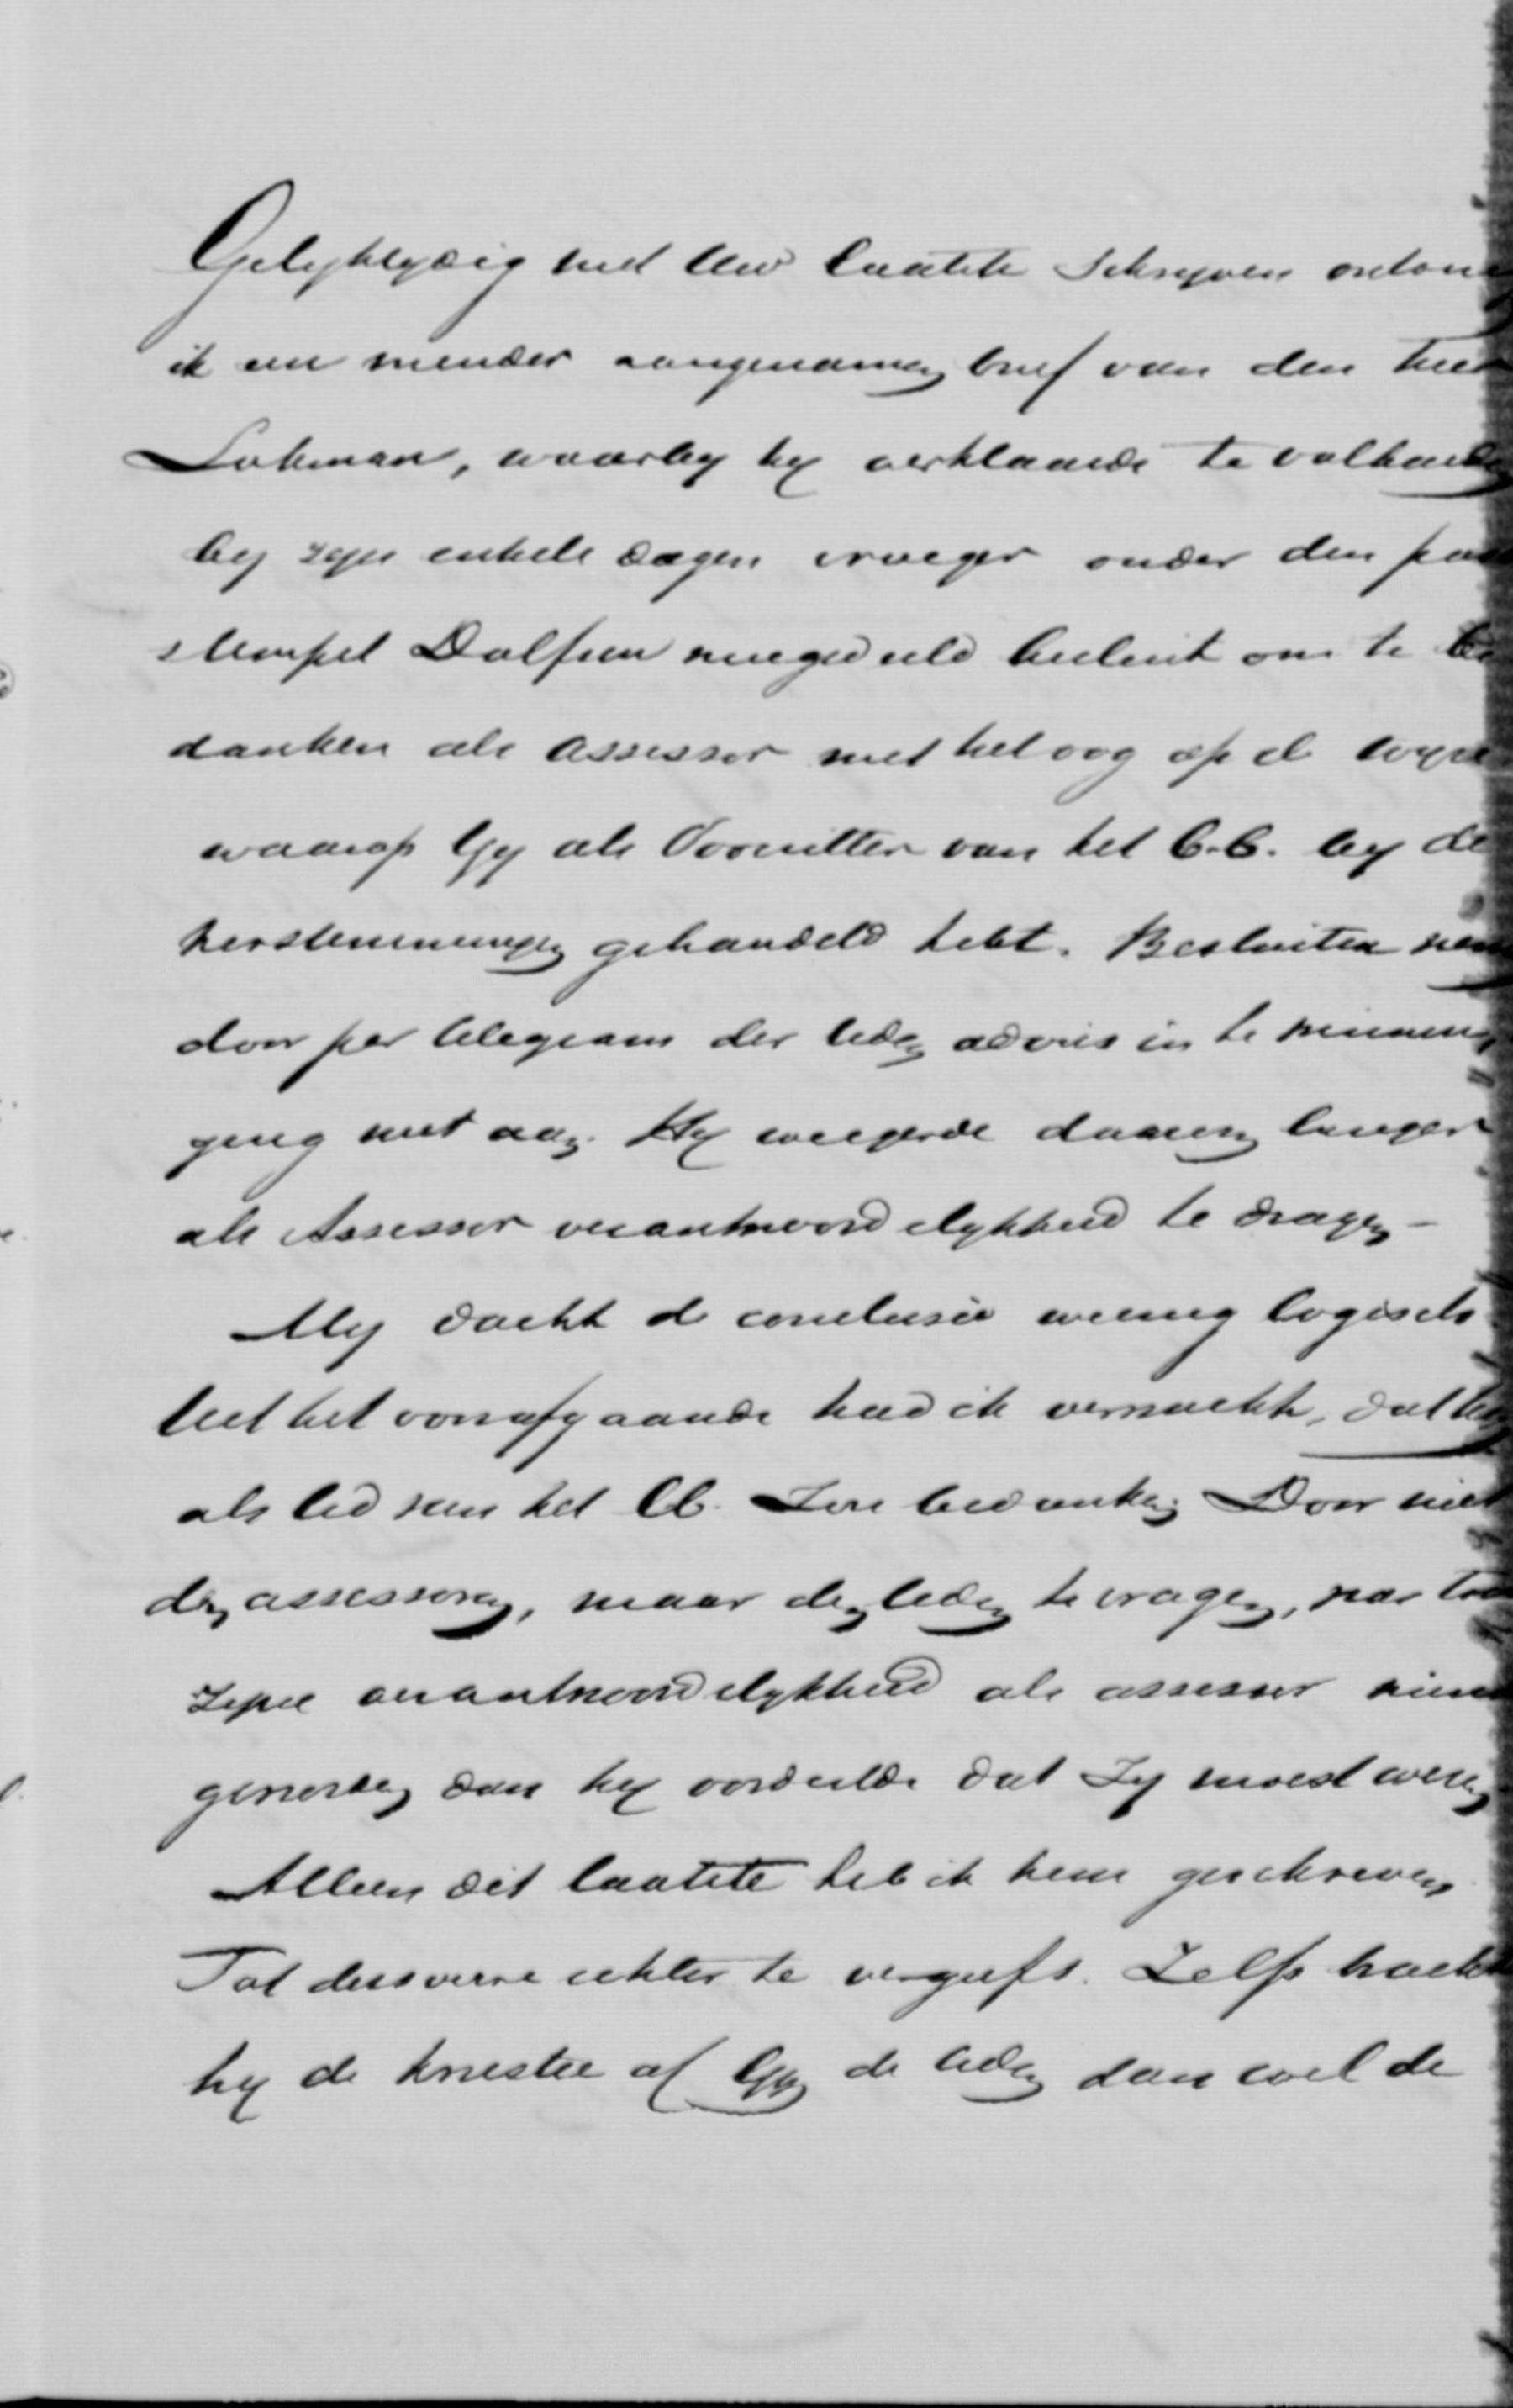 Gelyktydig met Uw laatste Schryven ontving
ik een minder aangenamen brief van den heer
Lohman, waarby hy verklaarde te volharden
by zyn enkele dagen vroeger onder den post
stempel Dalfsen meegedeeld besluit om te be
danken als Assessor met het oog op de wyze
waarop Gy als Voorzitter van het C.C. by de
herstemmingen gehandeld hebt. Besluiten nemen
door per telegram der leden advies in te winnen,
ging niet aan. Hy weigerde daarom langer
als Assessor verantwoordelykheid te dragen –
My dacht de conclusie weinig logisch.
Uit het voorafgaande had ik verwacht, dat hy
als lid van het CC. zou bedanken. Door niet
den assessoren, maar den leden te vragen, was toch
zijne verantwoordelykheid als assessor minder
geworden dan hy oordeelde dat zy moest wezen
Alleen dit laatste heb ik hem geschreven
Tot dusverre echter te vergeefs. Zelfs bracht
hy de kwestie of Gy de leden dan wel de